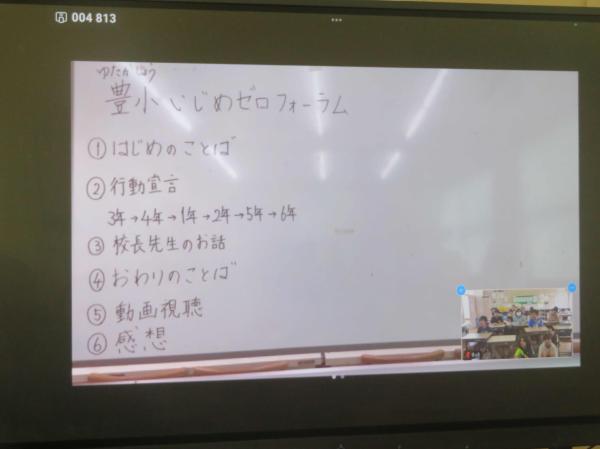 004 813
ゆたかしょう
豊小いじめゼロフォーラム
① はじめのことば
② 行動宣言
3年→4年→1年→2年→5年→6年
③ 校長先生のお話
④ おわりのことば
⑤ 動画視聴
⑥ 感想